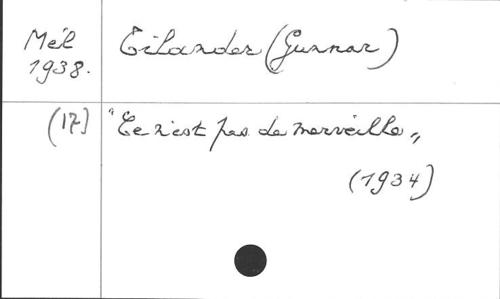 Mél
1938.
Tilander (Gunnar)
(17) "Ce n'est pas de merveille„
(1934)